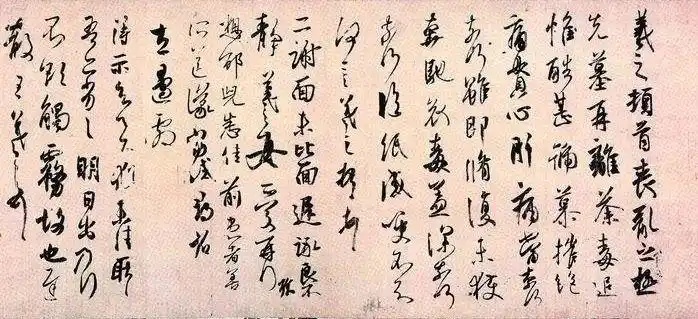 羲之頓首喪亂之極
先墓再離荼毒追
惟酷甚號慕摧絕
痛貫心肝痛當奈何
奈何雖即脩復未獲
奔馳哀毒益深奈何
奈何臨紙感哽不知
何言羲之頓首
二謝面未比面遲詠良
靜羲之女愛再拜
想邵兒悉佳前患者善
所送議當試尋省
左邊劇
得示知足下猶未佳耿耿
吾亦劣劣明日出乃行
不欲觸霧故也遲
散王羲之頓首